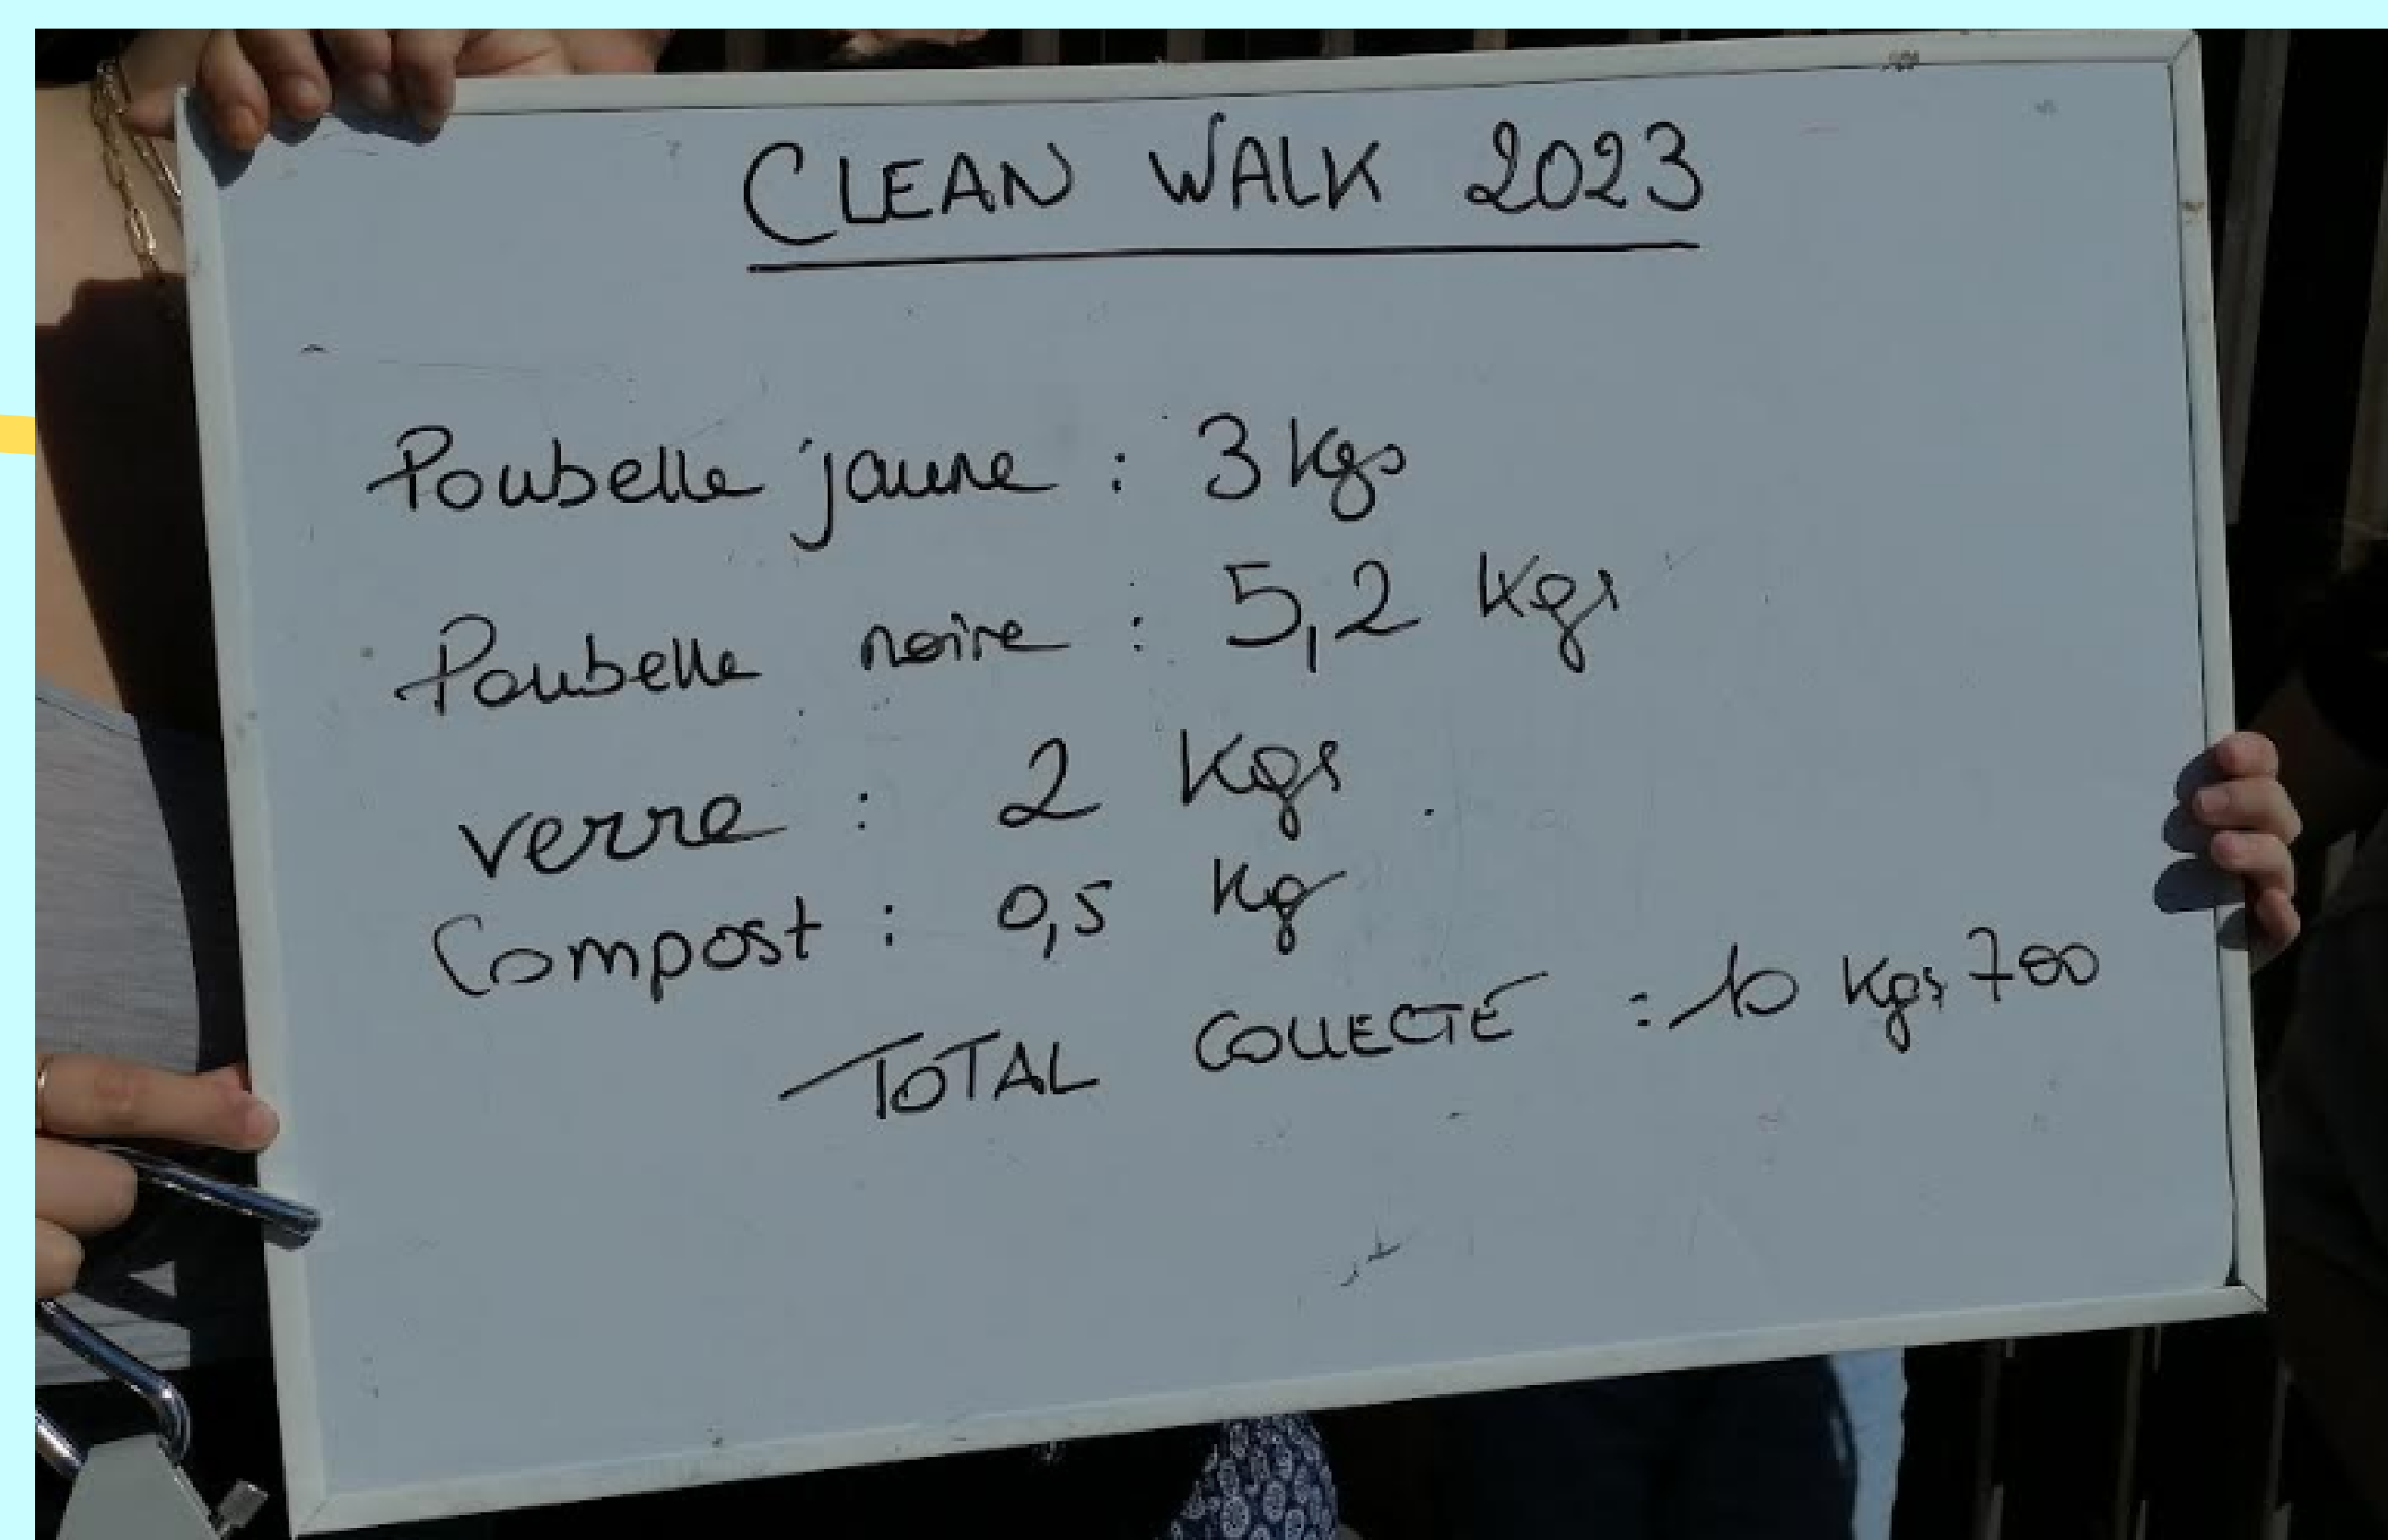 CLEAN WALK 2023
Poubelle jaune : 3 kgs
Poubelle noire : 5,2 kgs
verre : 2 Kgs
Compost : 0,5 Kg
TOTAL COLLECTÉ : 10 Kgs 700